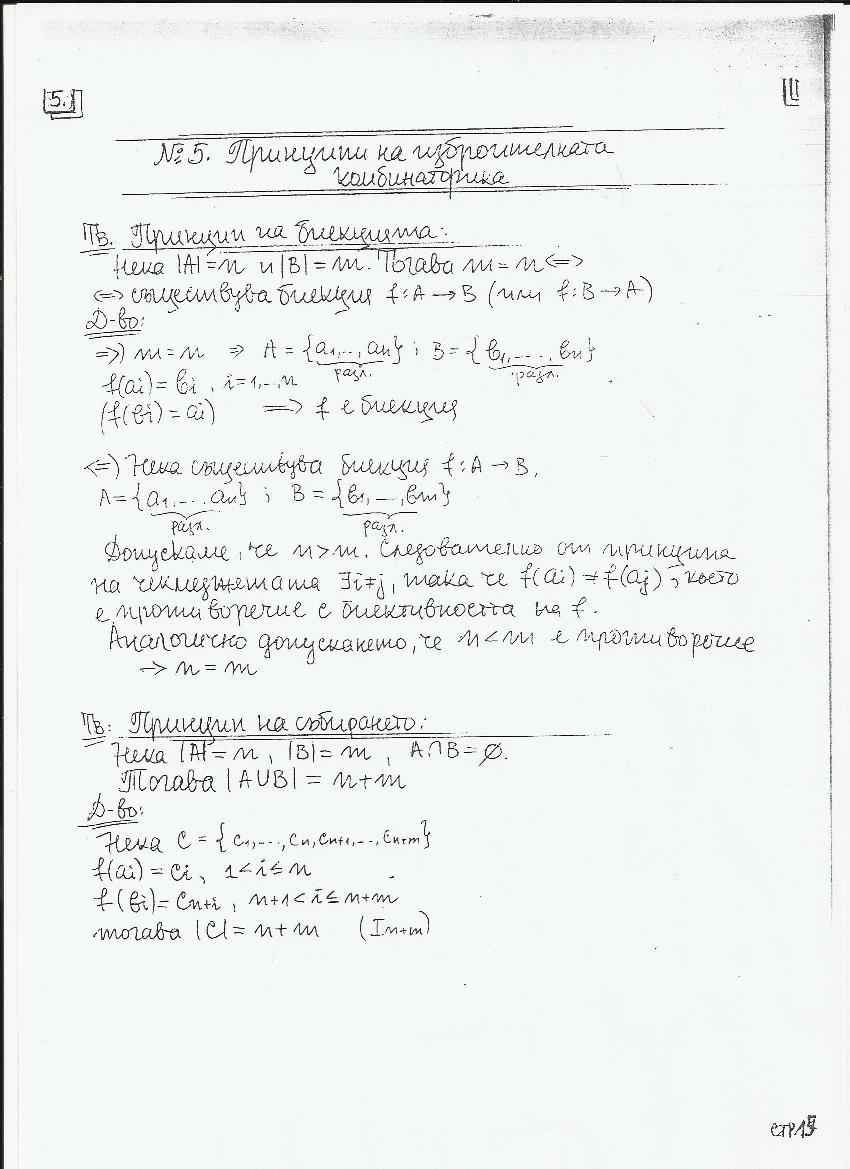 5.
№5. Принципи на изброителната
комбинаторика
Тв. Принцип на биекцията:
Нека |A|=n и |B|=m. Тогава m=n <=>
<=> съществува биекция f: A → B (или f: B → A)
Д-во:
=>) m=n => A = {a1,..., an} ; B = {b1,...., bn}
разл. разл.
f(ai) = bi , i=1,..,n
(f(bi) = ai) => f е биекция
<=) Нека съществува биекция f: A → B,
A = {a1,.... an} ; B = {b1,..., bm}
разл. разл.
Допускаме, че n>m. Следователно от принципа
на чекмеджетата ∃i≠j, така че f(ai) = f(aj), което
е противоречие с биективността на f.
Аналогично допускането, че n<m е противоречие
→ n = m
Тв: Принцип на събирането:
Нека |A|=n , |B|=m , A∩B=∅.
Тогава |A∪B| = n+m
Д-во:
Нека C = {c1,..., cn, cn+1,..., cn+m}
f(ai) = ci , 1<i≤n
f(bi) = cn+i , n+1<i≤n+m
тогава |C| = n+m (In+m)